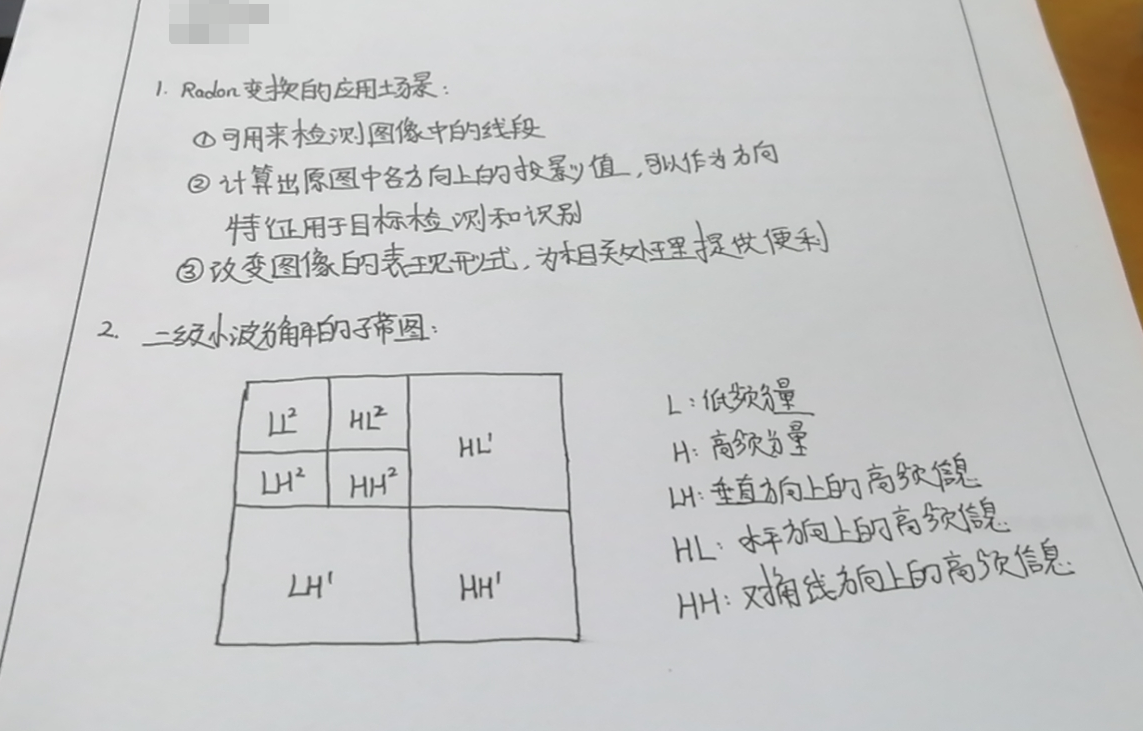 1. Radon变换的应用场景：
①可用来检测图像中的线段
②计算出原图中各方向上的投影值，可以作为方向
特征用于目标检测和识别
③改变图像的表现形式，为相关处理提供便利
2. 二级小波分解的子带图：
LL² HL² HL¹
LH² HH²
LH¹ HH¹
L：低频分量
H：高频分量
LH：垂直方向上的高频信息
HL：水平方向上的高频信息
HH：对角线方向上的高频信息